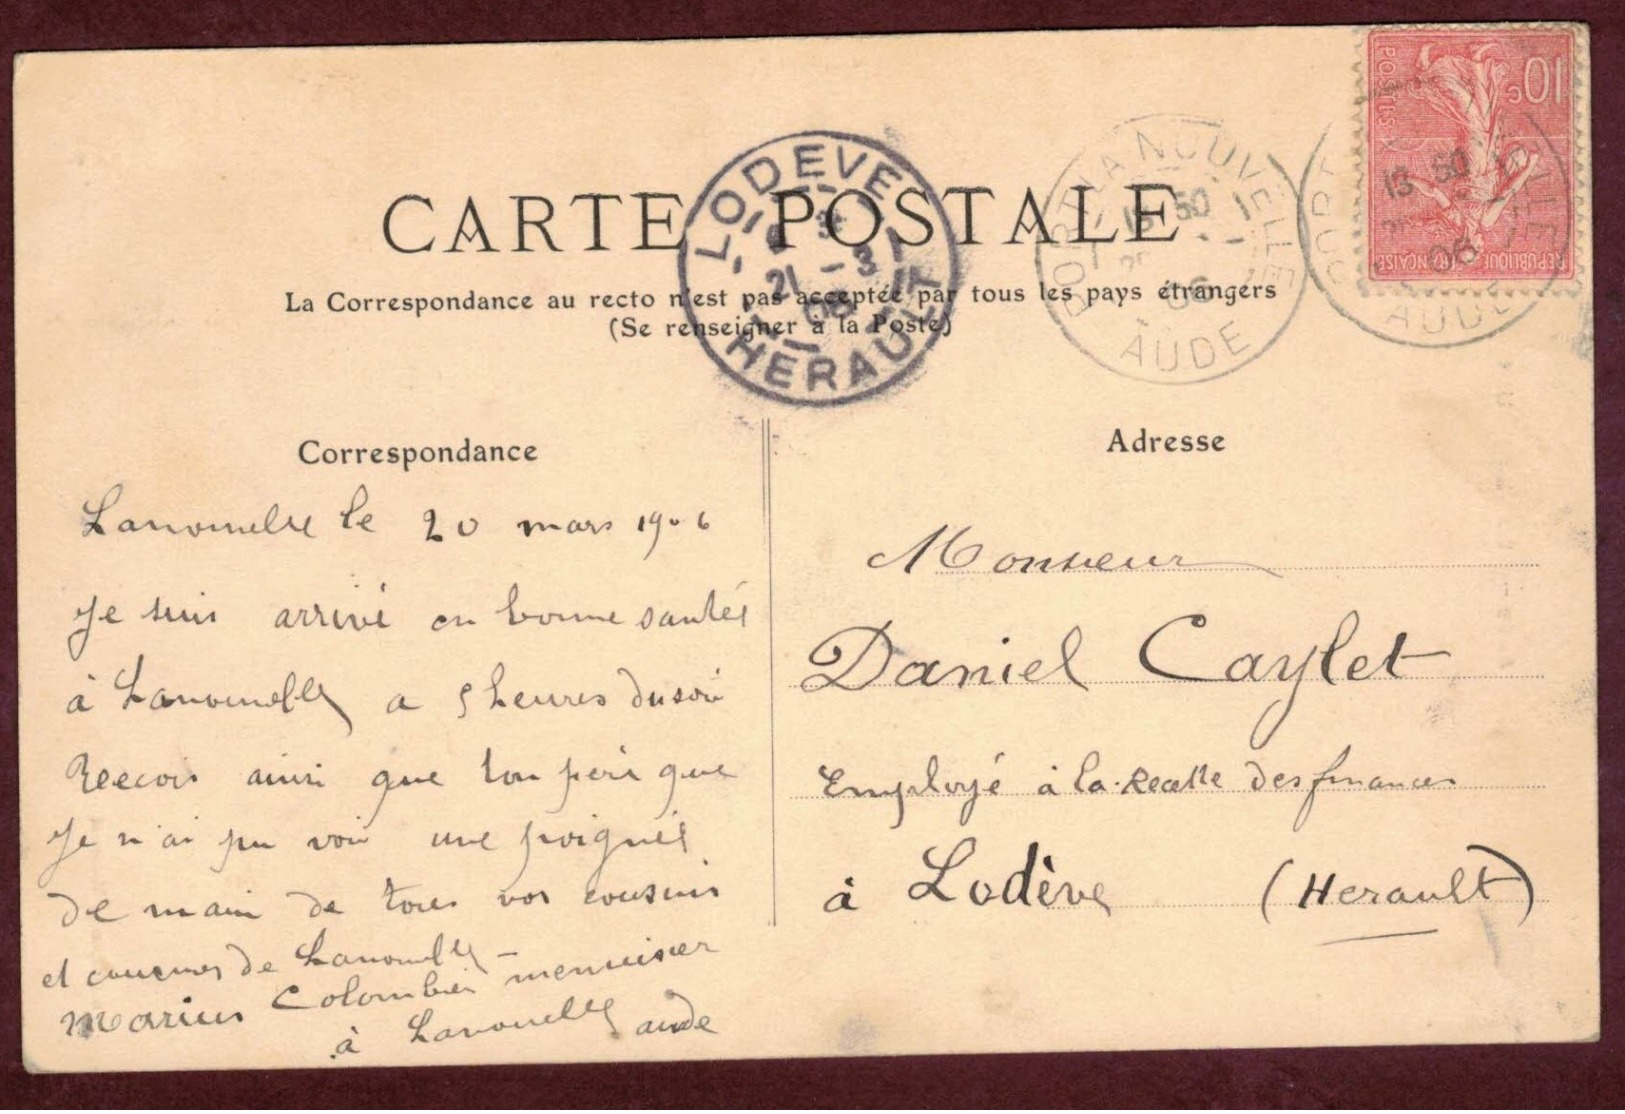 CARTE POSTALE
La Correspondance au recto n'est pas acceptée par tous les pays étrangers
(Se renseigner à la Poste)
LODEVE
21 - 3
06
HERAULT
PORT-LA NOUVELLE
13 50
06
AUDE
13 50
06
AUDE
10c
POSTES
REPUBLIQUE FRANÇAISE
Correspondance
Lanouvelle le 20 mars 1906
Je suis arrivé en bonne santée
à Lanouvelle a 5 heures du soir
Recois ainsi que ton père que
Je n'ai pu voir une poignée
De main de tous vos cousins
et cousines de Lanouvelle -
Marius Colombier menuisier
à Lanouvelle aude
Adresse
Monsieur
Daniel Caylet
Employé à la Recette des finances
à Lodève (Herault)